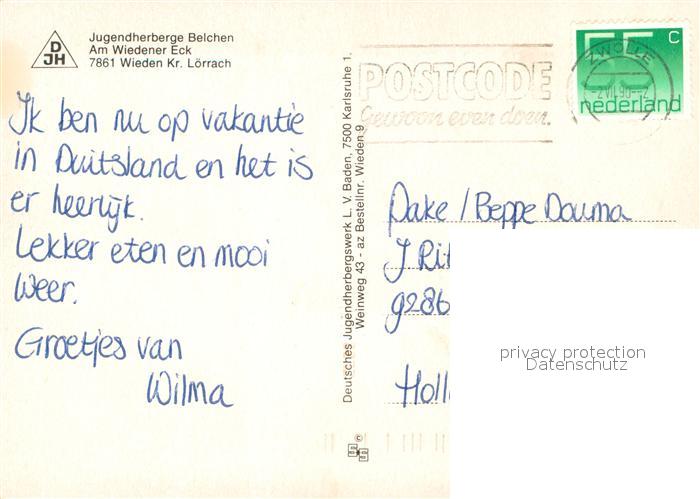 DJH
Jugendherberge Belchen
Am Wiedener Eck
7861 Wieden Kr. Lörrach
Ik ben nu op vakantie
in Duitsland en het is
er heerlijk.
Lekker eten en mooi
weer.
Groetjes van
Wilma
Deutsches Jugendherbergswerk L. V. Baden, 7500 Karlsruhe 1,
Weinweg 43 - az Bestellnr. Wieden 9
POSTCODE
Gewoon even doen.
ZWOLLE
55 c
nederland
Pake / Beppe Douma
J Rit
9286
Holl
privacy protection
Datenschutz